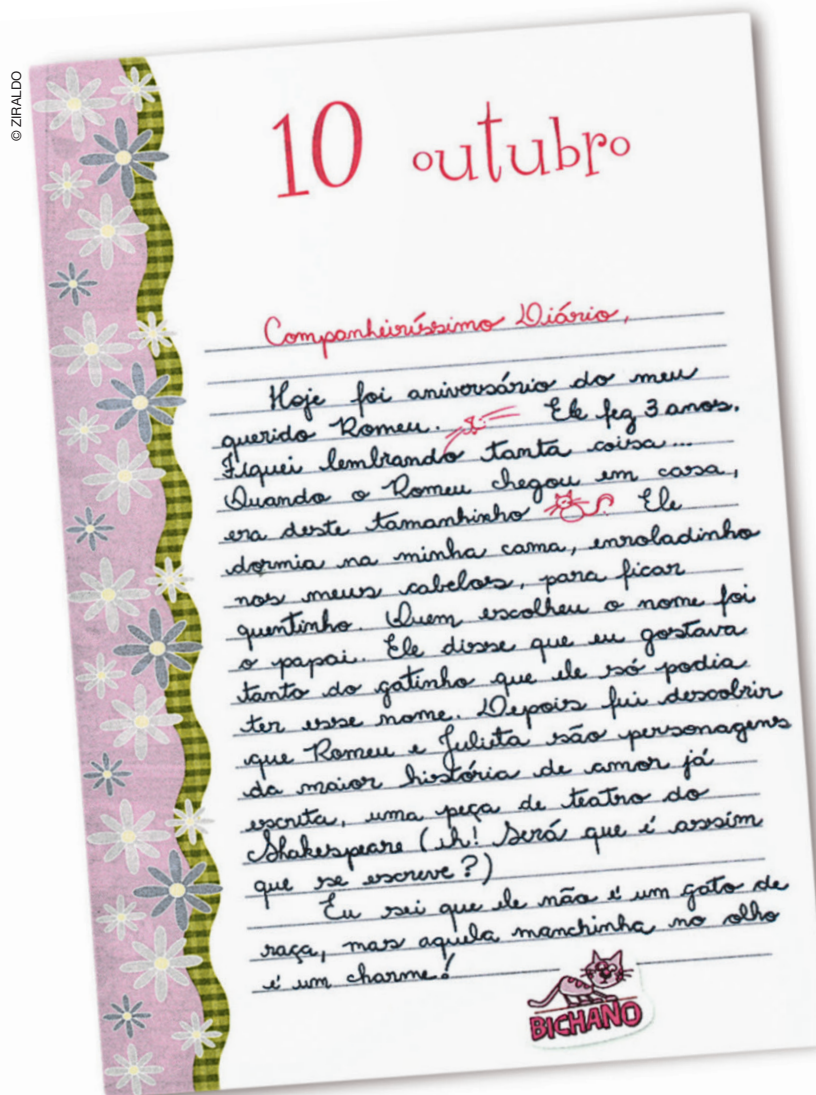 © ZIRALDO
10 outubro
Companheiríssimo Diário,
Hoje foi aniversário do meu
querido Romeu. Ele fez 3 anos.
Fiquei lembrando tanta coisa...
Quando o Romeu chegou em casa,
era deste tamanhinho Ele
dormia na minha cama, enroladinho
nos meus cabelos, para ficar
quentinho. Quem escolheu o nome foi
o papai. Ele disse que eu gostava
tanto do gatinho que ele só podia
ter esse nome. Depois fui descobrir
que Romeu e Julieta são personagens
da maior história de amor já
escrita, uma peça de teatro do
Shakespeare (ih! Será que é assim
que se escreve?)
Eu sei que ele não é um gato de
raça, mas aquela manchinha no olho
é um charme!
BICHANO